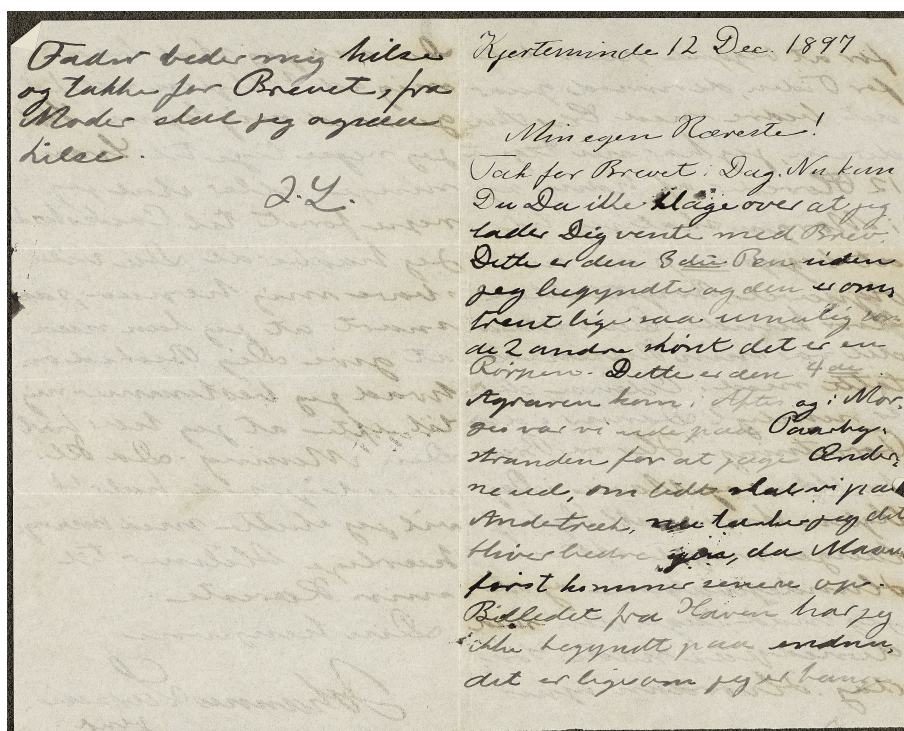 Fader beder mig hilse
og takke for Brevet, fra
Moder skal jeg ogsaa
hilse.
J. L.
Kjerteminde 12 Dec. 1897
Min egen Kæreste!
Tak for Brevet i Dag. Nu kan
Du Da ikke klage over at jeg
lader Dig vente med Brev.
Dette er den 3die Pen uden
jeg begyndte og den er om,
trent lige saa umulig som
de 2 andre skønt det er en
Rørpen. Dette er den 4de.
Agraren kom i Aftes og i Mor,
ges var vi ude paa
stranden for at jage Ænder,
ne ud, om lidt skal vi paa
Andetræk, nu tænker jeg det
bliver bedre da Maanen
først kommer senere op.
Billedet fra Haven har jeg
ikke begyndt paa endnu,
det er ligesom jeg er bange